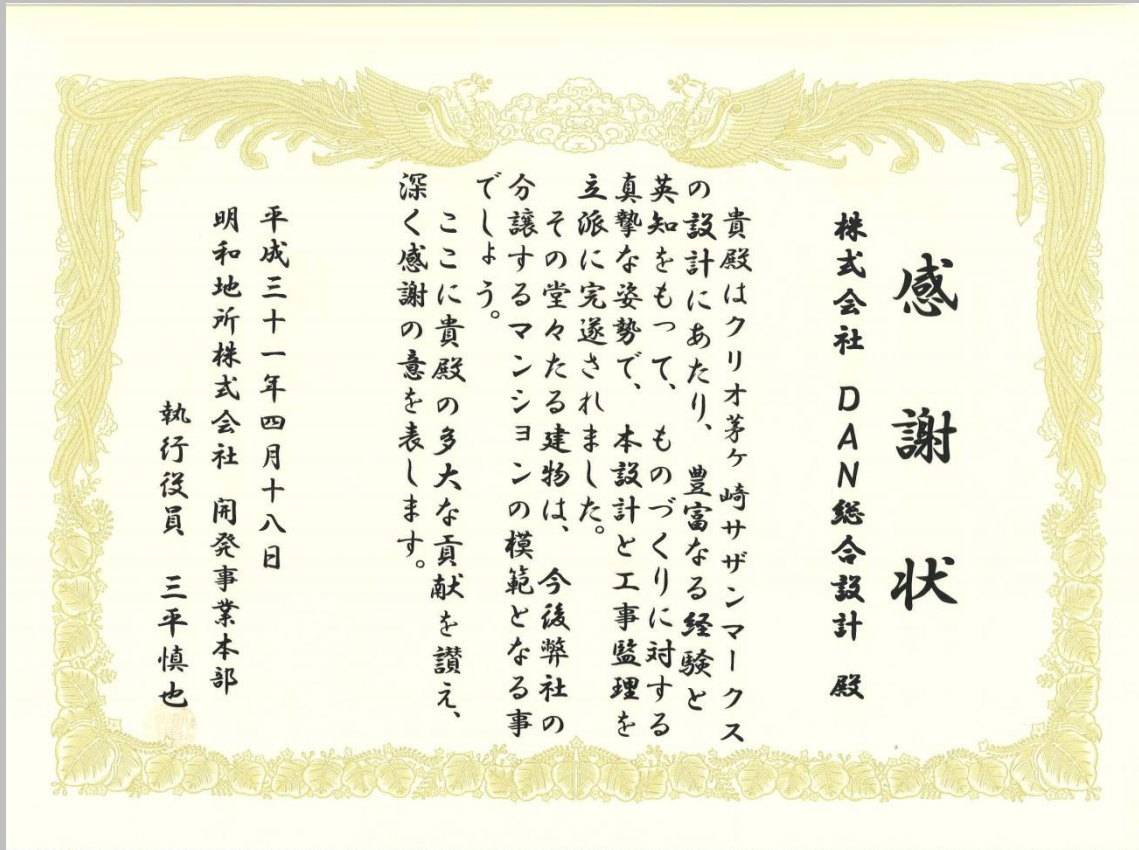 感謝状
株式会社 DAN総合設計 殿
貴殿はクリオ茅ケ崎サザンマークス
の設計にあたり、豊富なる経験と
英知をもって、ものづくりに対する
真摯な姿勢で、本設計と工事監理を
立派に完遂されました。
その堂々たる建物は、今後弊社の
分譲するマンションの模範となる事
でしょう。
ここに貴殿の多大な貢献を讃え、
深く感謝の意を表します。
平成三十一年四月十八日
明和地所株式会社 開発事業本部
執行役員 三平慎也